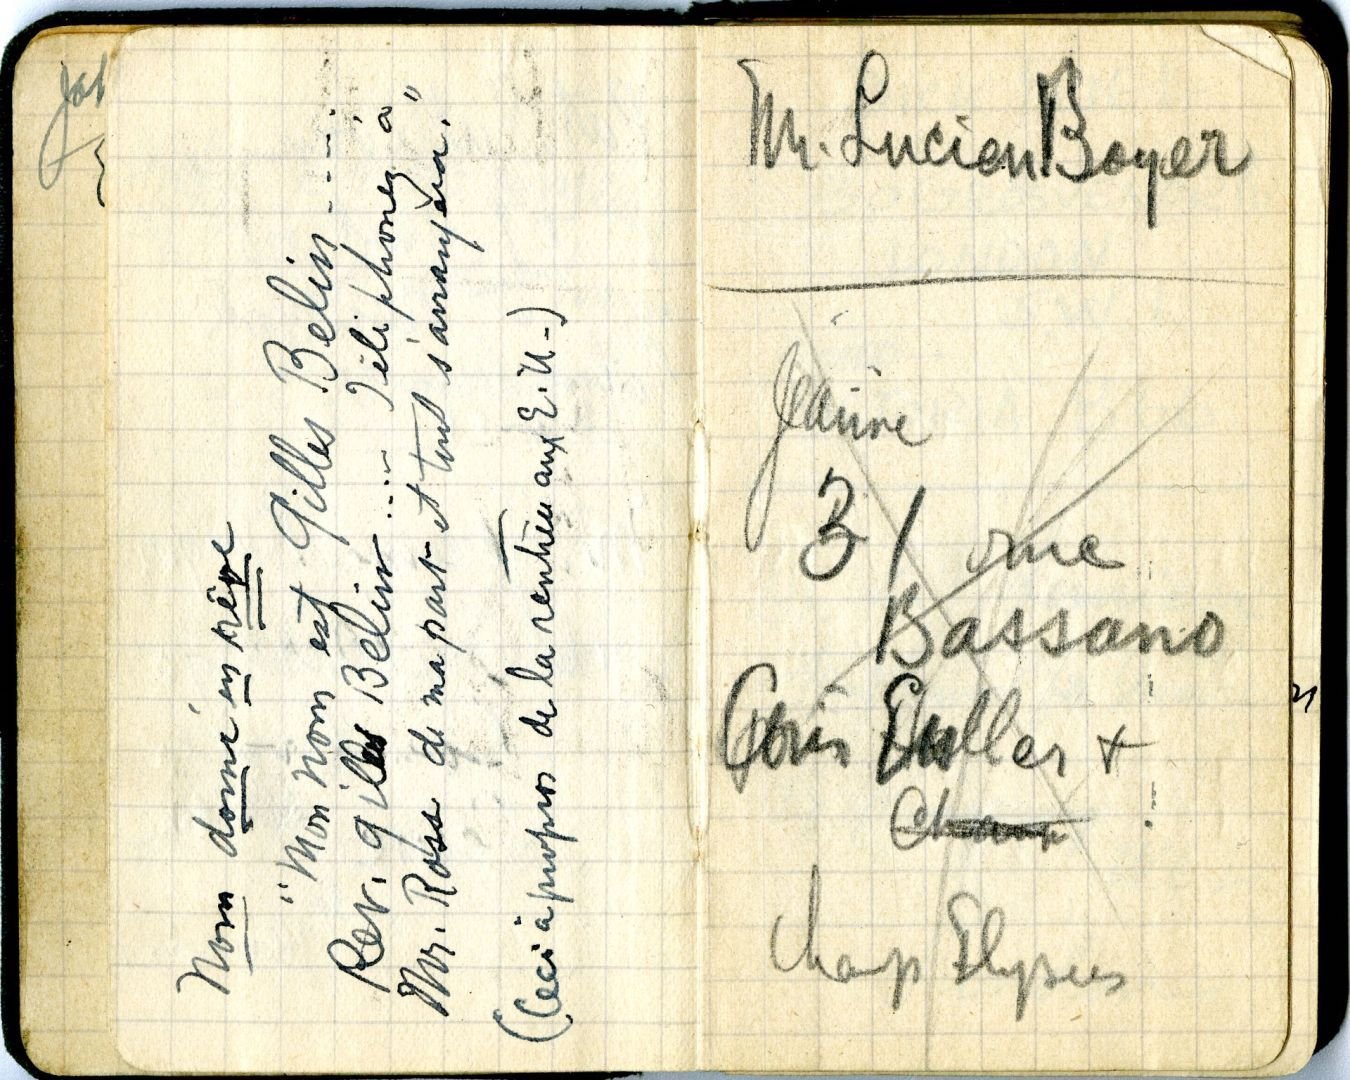 Nom donné en rêve
"Mon nom est Gilles Belin ....
Rev. Gilles Belin .... Téléphonez à
Mr. Ross de ma part et tout s'arrangera."
(Ceci à propos de la rentrée aux E.U.-)
Mr. Lucien Boyer
Jeanne
31 rue
Bassano
Entre +
Champ Elysees